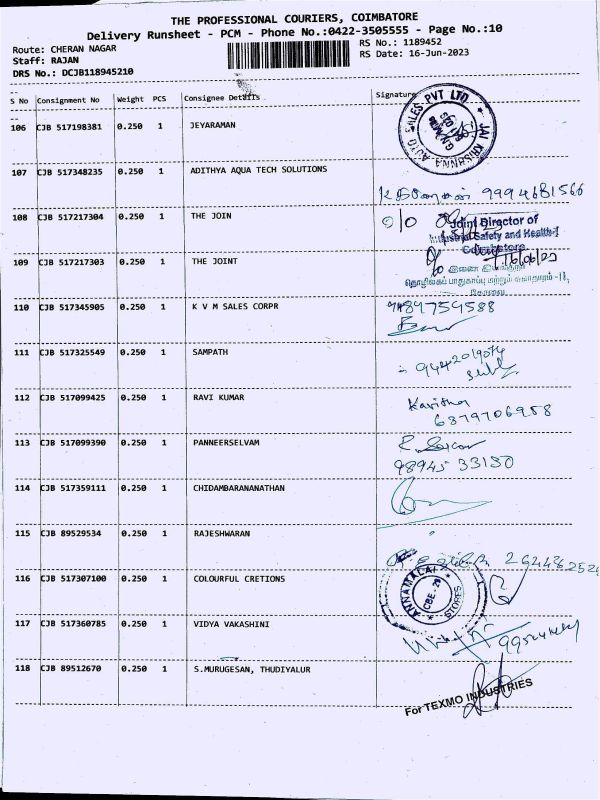 THE PROFESSIONAL COURIERS, COIMBATORE
Delivery Runsheet - PCM - Phone No.:0422-3505555 - Page No.:10
Route: CHERAN NAGAR RS No.: 1189452
Staff: RAJAN RS Date: 16-Jun-2023
DRS No.: DCJB118945210
S No Consignment No Weight PCS Consignee Details Signature
106 CJB 517198381 0.250 1 JEYARAMAN
JAI KRISHNA AUTO SALES PVT LTD
107 CJB 517348235 0.250 1 ADITHYA AQUA TECH SOLUTIONS
9994681566
108 CJB 517217304 0.250 1 THE JOIN
Joint Director of
Industrial Safety and Health-I
Coimbatore
109 CJB 517217303 0.250 1 THE JOINT
இணை இயக்குநர்
தொழிலகப் பாதுகாப்பு மற்றும் சுகாதாரம் -II,
கோவை
110 CJB 517345905 0.250 1 K V M SALES CORPR
9489754588
111 CJB 517325549 0.250 1 SAMPATH
112 CJB 517099425 0.250 1 RAVI KUMAR
Kavitha
6379706958
113 CJB 517099390 0.250 1 PANNEERSELVAM
98945 33130
114 CJB 517359111 0.250 1 CHIDAMBARANANATHAN
115 CJB 89529534 0.250 1 RAJESHWARAN
116 CJB 517307100 0.250 1 COLOURFUL CRETIONS
ANNAMALAI STORES CBE - 29
117 CJB 517360785 0.250 1 VIDYA VAKASHINI
118 CJB 89512670 0.250 1 S.MURUGESAN, THUDIYALUR
For TEXMO INDUSTRIES